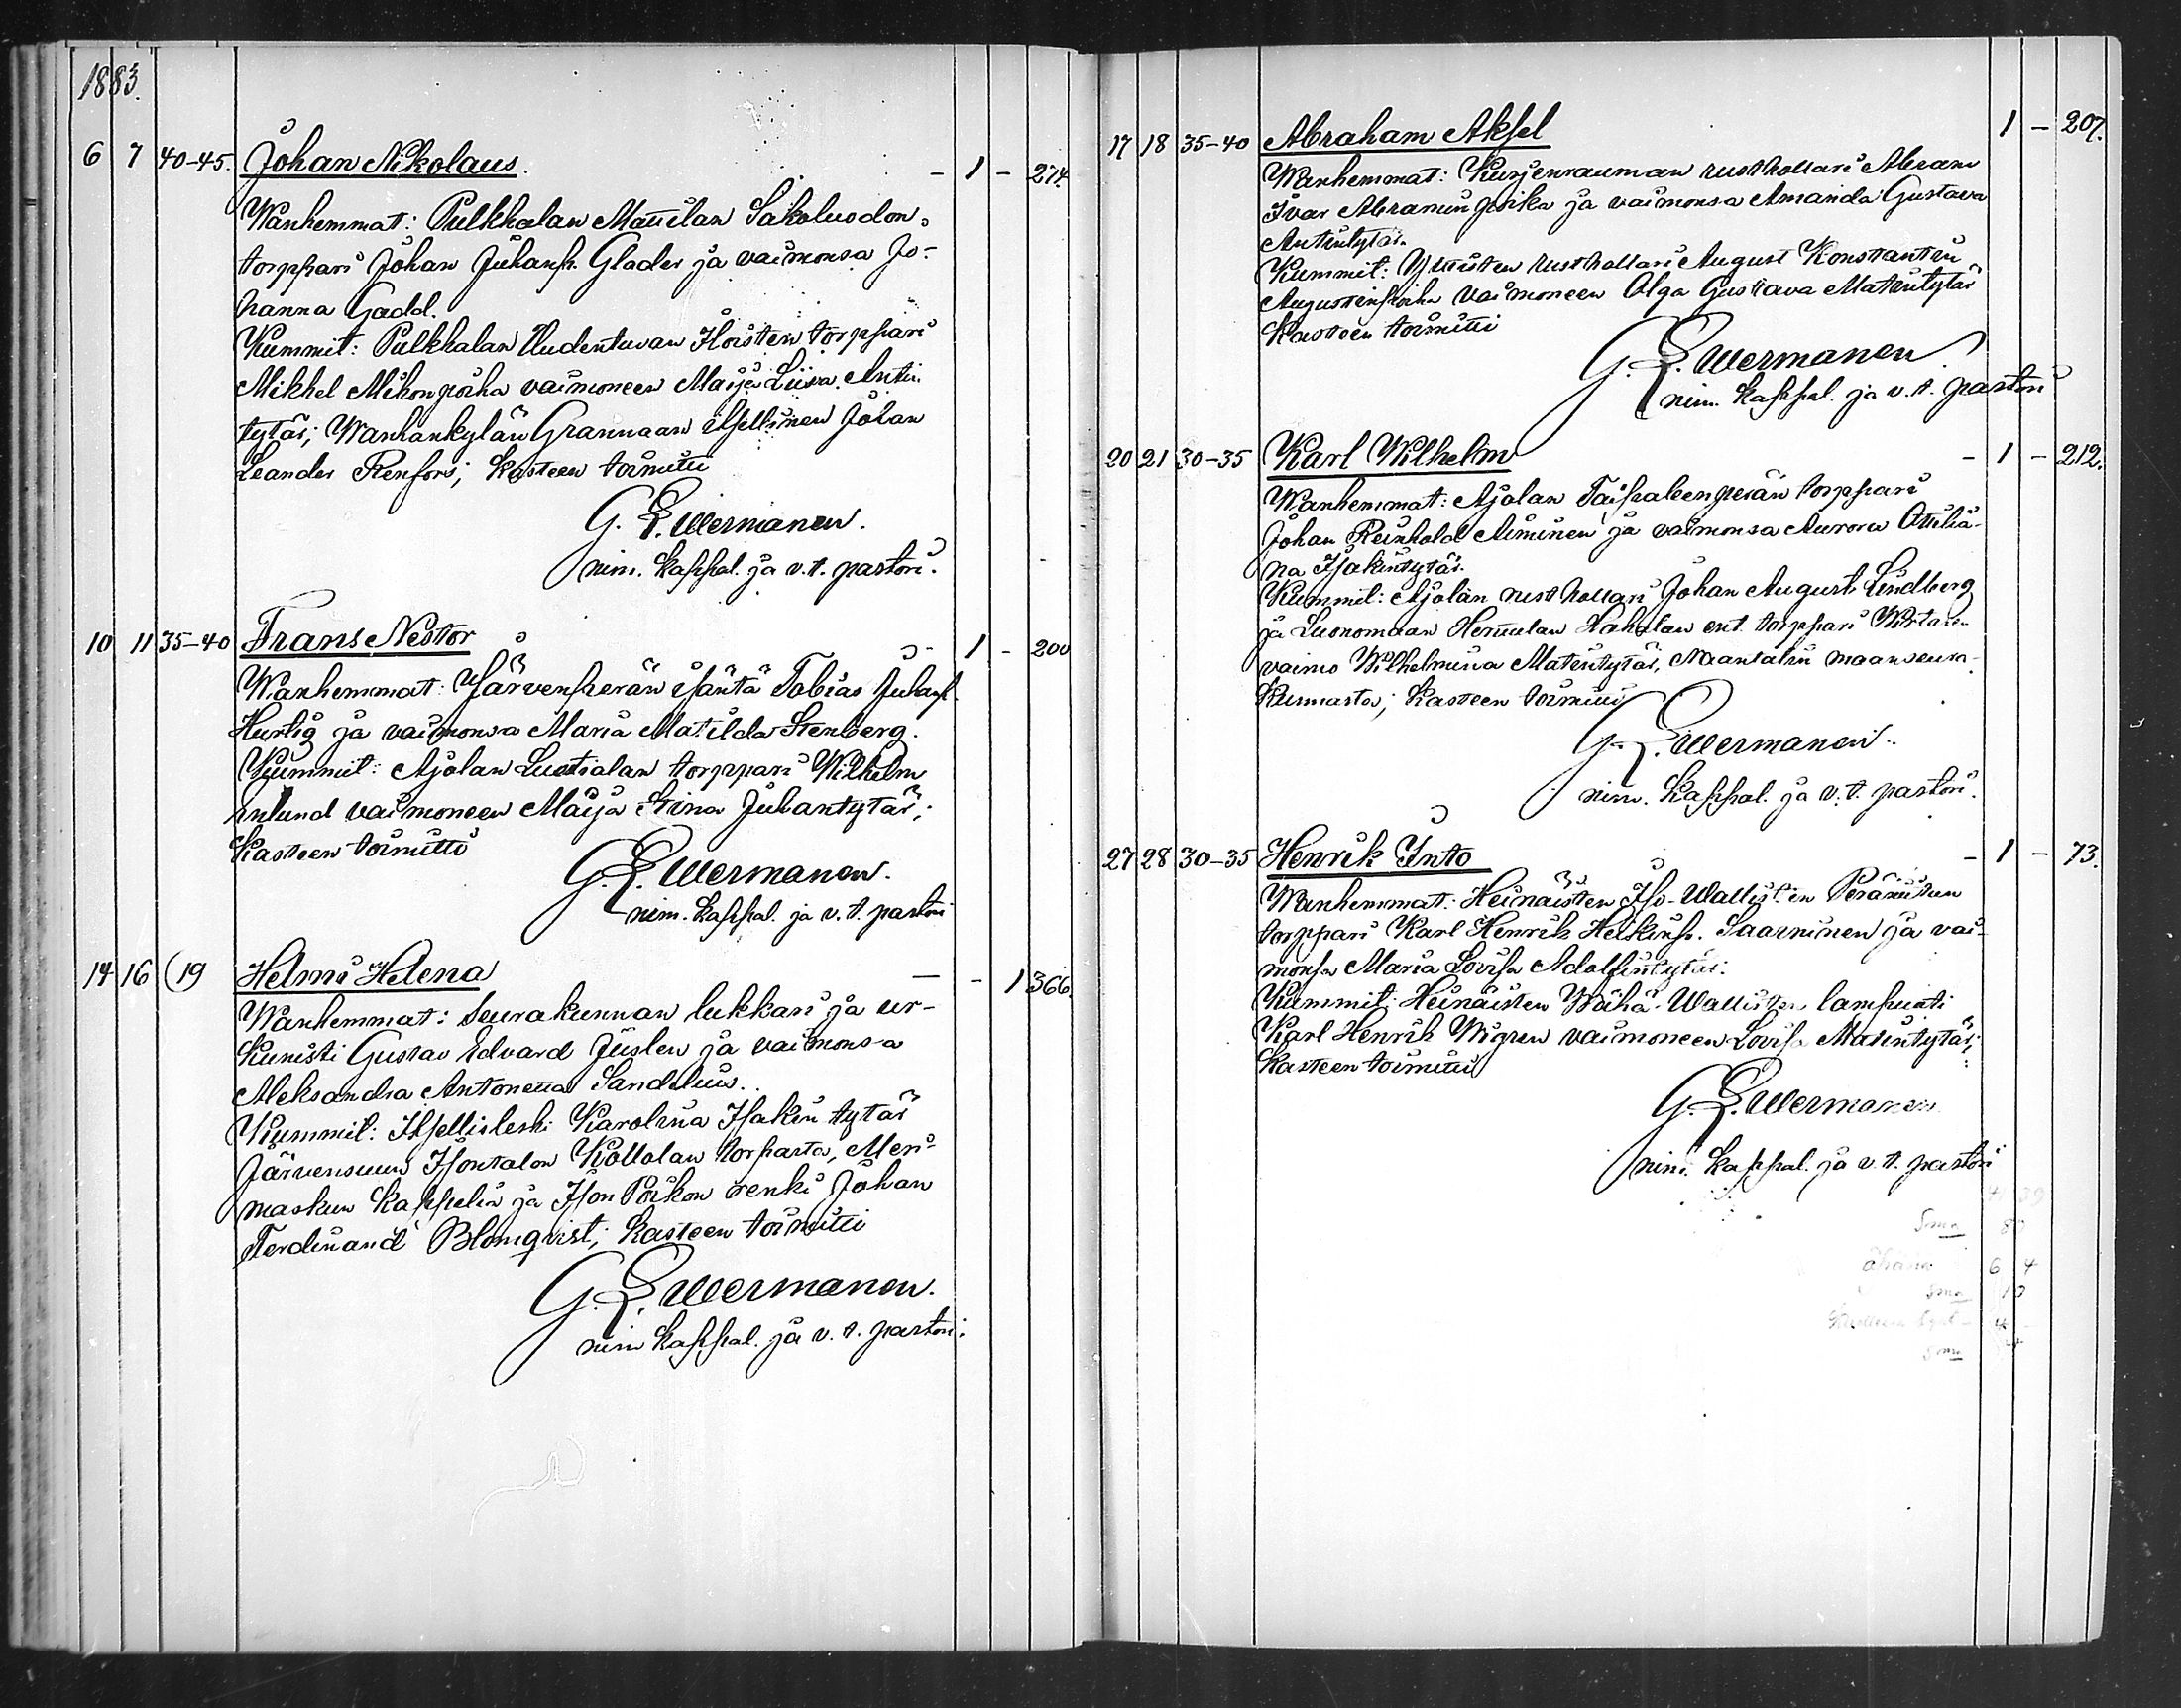 1883.
6 7 40-45. Johan Nikolaus. - 1 - 274.
Wanhemmat: Pulkkalan Mattilan Sakoluodon
torppari Johan Juhanp. Glader ja vaimonsa Jo-
hanna Gadd.
Kummit: Pulkkalan Uudentuvan Iloisten torppari
Mikkel Mikonpoika vaimoneen Maija Liisa Antin
tytär; Wanhankylän Grannaan itsellinen Johan
Leander Renfors; Kasteen toimitti
G. E. Wermanen.
nim. kappal. ja v.t. pastori.
10 11 35-40 Frans Nestor - 1 - 200
Wanhemmat: Järvenperän isäntä Tobias Juhanp.
Hurtig ja vaimonsa Maria Matilda Stenberg.
Kummit: Ajolan Luotialan torppari Wilhelm
vaimoneen Maija Stina Juhantytär;
Kasteen toimitti
G. E. Wermanen.
nim. kappal. ja v.t. pastori
14 16 (19 Helmi Helena - - 1 366.
Wanhemmat: Seurakunnan lukkari ja ur-
kunisti Gustav Edvard Juslen ja vaimonsa
Aleksandra Antonetta Sandelius.
Kummit: Itsellisleski Karolina Isakin tytär
Järvensuun Isontalon Kollolan torpasta, Meri-
maskun kappelia ja Ison Poikon renki Johan
Ferdinand Blomqvist; Kasteen toimitti
G. E. Wermanen.
nim kappal. ja v.t. pastori.
17 18 35-40 Abraham Aksel 1 - 207.
Wanhemmat: Kurjenrauman rusthollari Abram
Ivar Abramin poika ja vaimonsa Amanda Gustava
Antintytär.
Kummit: rusthollari August Konstantin
Augustinpoika vaimoneen Olga Gustava Matintytär
Kasteen toimitti
G. E. Wermanen
nim. kappal. ja v.t. pastori
20 21 30-35 Karl Wilhelm - 1 - 212.
Wanhemmat: Ajolan Taipaleenperän torppari
Johan Reinhold Niminen ja vaimonsa Aurora Ottilia-
na Isakintytär.
Kummit: Ajolan rusthollari Johan August Lindberg
ja Luonnonmaan Hahalan ent. torppari Wirtasen
vaimo Wilhelmina Matintytär, Naantalin maaseura-
kunnasta; Kasteen toimitti
G. E. Wermanen.
nim. kappal. ja v.t. pastori.
27 28 30-35 Henrik Into - 1 - 73.
Wanhemmat: Heinäisten Iso-Wallisten
torppari Karl Henrik Heikinp. Saarninen ja vai-
monsa Maria Lovisa Adolfintytär.
Kummit: Heinäisten Wähä-Wallisten lampuoti
Karl Henrik Wigren vaimoneen Lovisa Matintytär;
Kasteen toimitti
G. E. Wermanen
nim. kappal. ja v.t. pastori